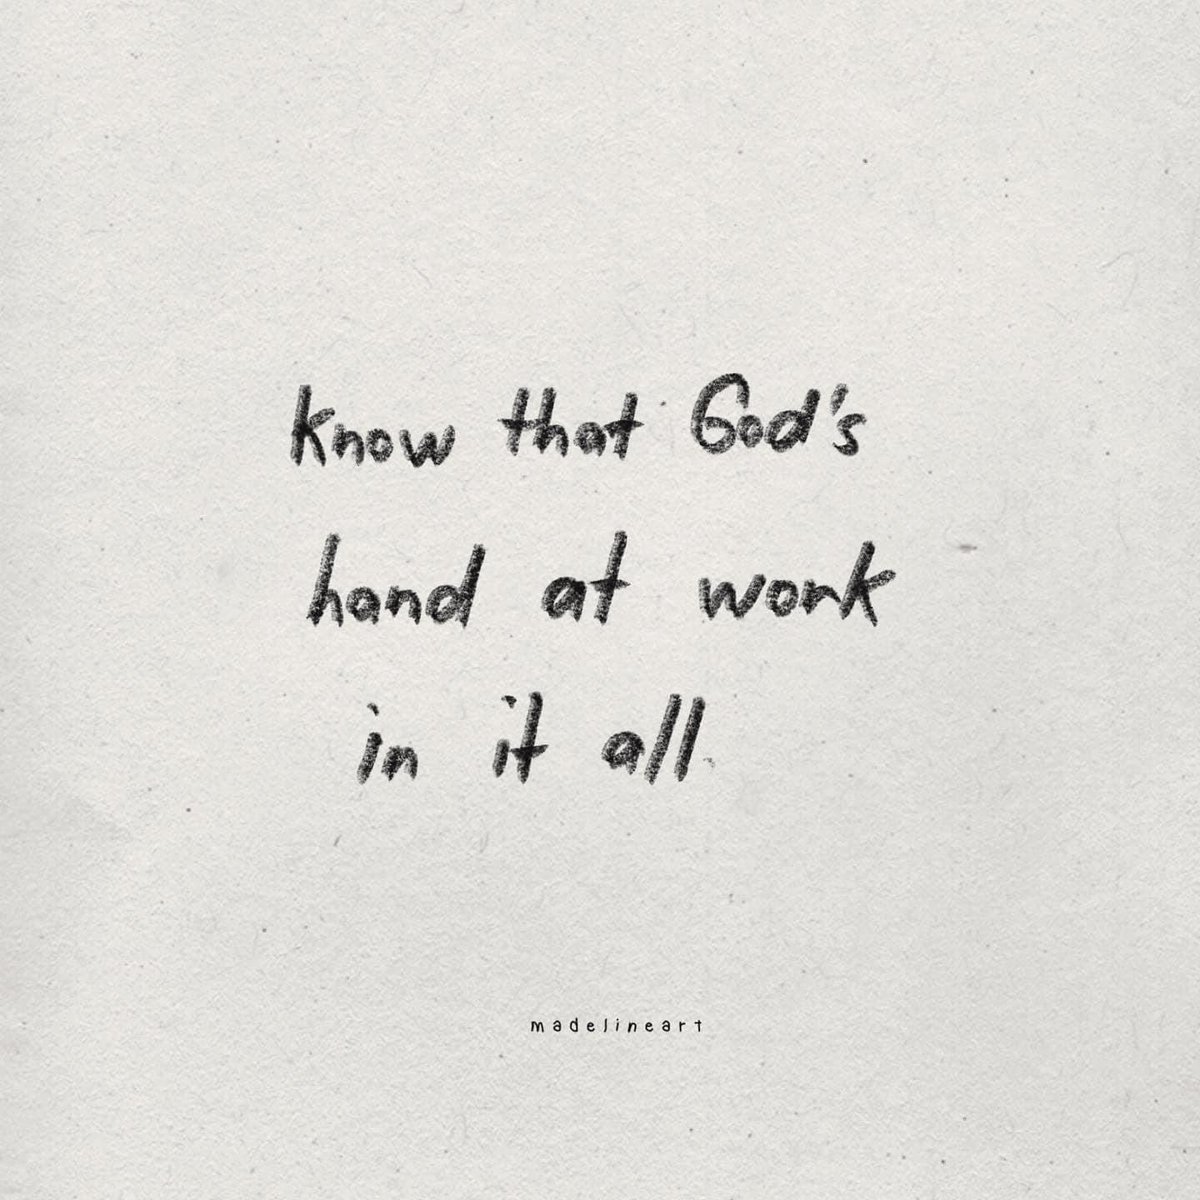 know that God's
hand at work
in it all.
madelineart